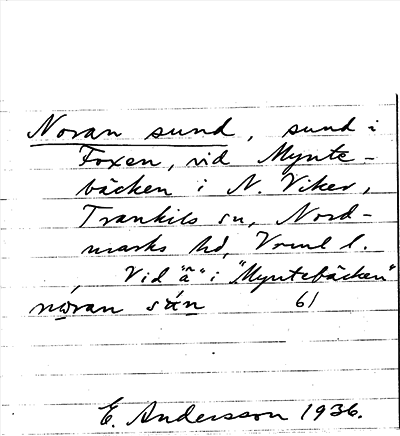 Noran sund, sund i
Foxen, vid Mynte-
bäcken i N. Viker,
Trankils sn, Nord-
marks hd, Vrml l.
Vid "a" i "Myntebäcken"
61
E. Andersson 1936.